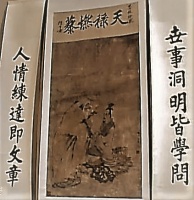 世事洞明皆學問
天祿燃藜
人情練達即文章